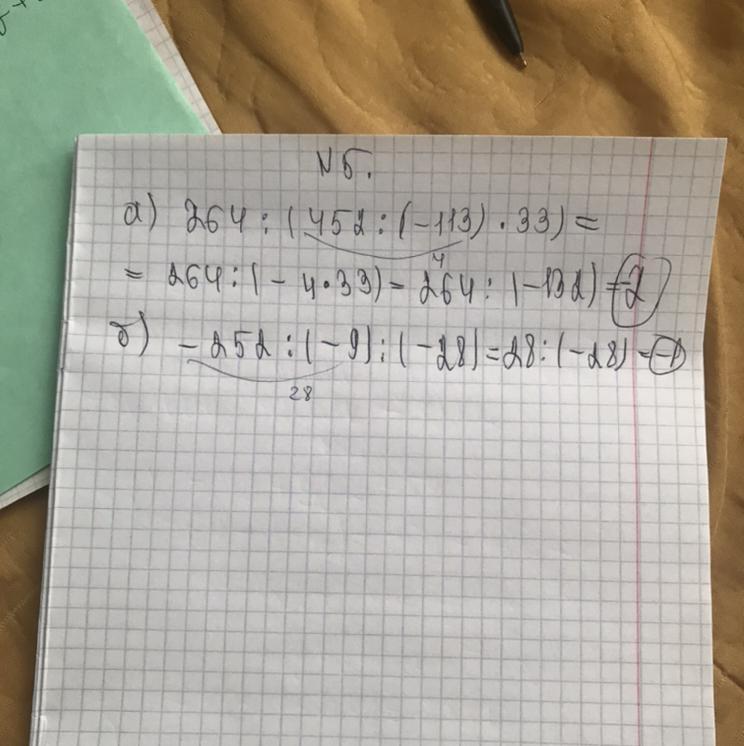 N 5.
а) 264 : (452 : (-113) · 33) =
4
= 264 : (- 4 · 33) = 264 : (-132) = -2
б) - 252 : (- 9) : (- 28) = 28 : (-28) = -1
28